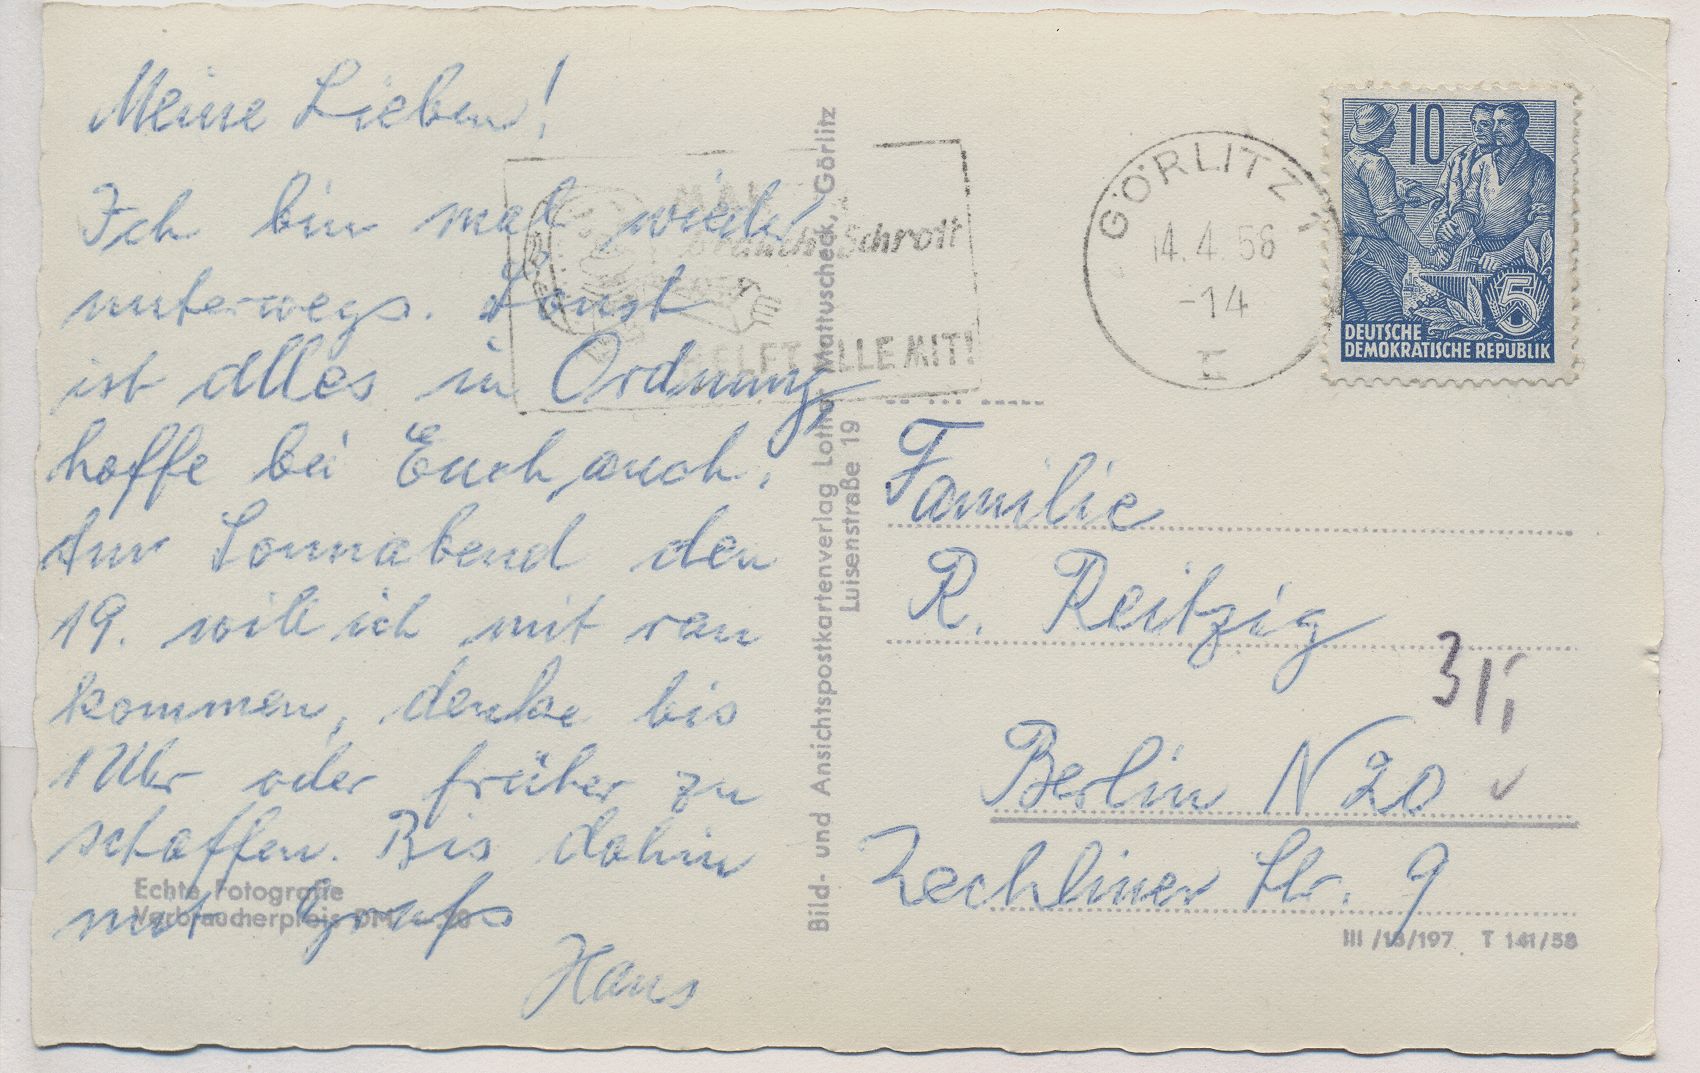 Meine Lieben!
Ich bin mal wieder
unterwegs. Sonst
ist alles in Ordnung,
hoffe bei Euch auch.
Am Sonnabend den
19. will ich mit ran
kommen, denke bis
1 Uhr oder früher zu
schaffen. Bis dahin
mit Gruß
Hans
Echte Fotografie
Verbraucherpreis DM
Bild- und Ansichtspostkartenverlag Lothar Mattuscheck, Görlitz
Luisenstraße 19
Schrott
HELFT ALLE MIT!
GÖRLITZ 1
14.4.56
-14
10
5
DEUTSCHE
DEMOKRATISCHE REPUBLIK
Familie
R. Reitzig
Berlin N 20
Zechliner Str. 9
III /18/197 T 141/58